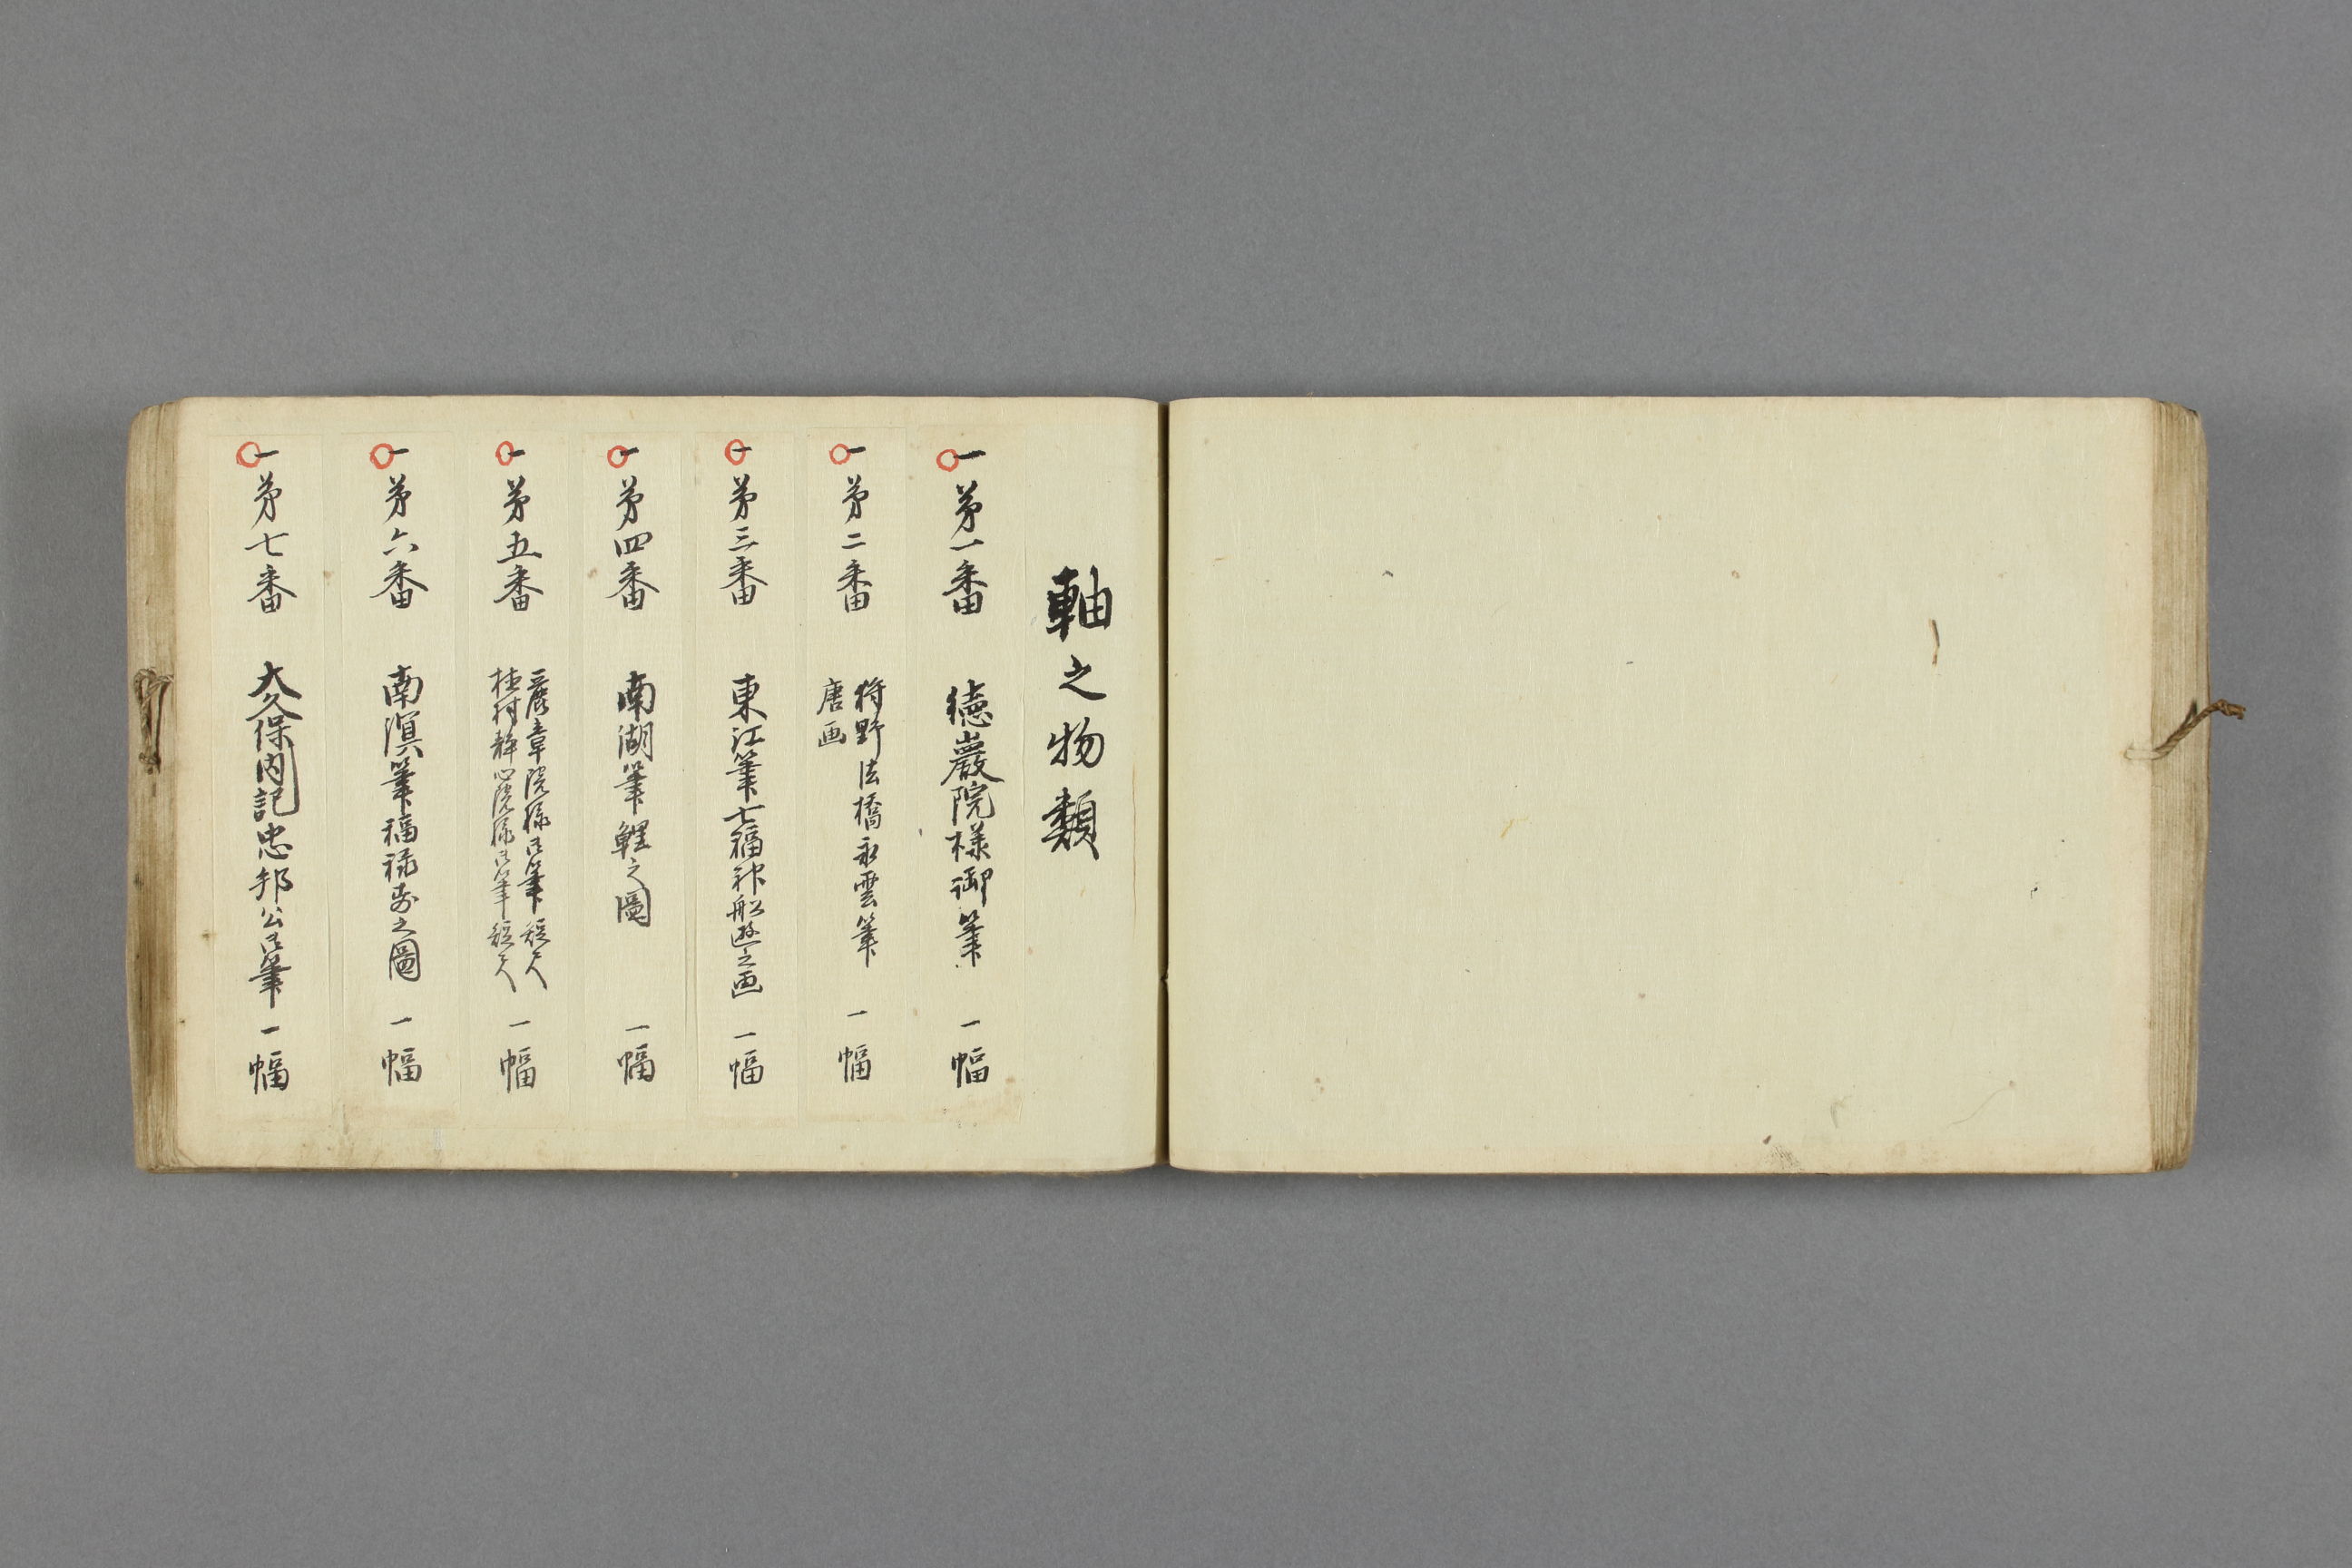 軸之物類
一第一番 徳巖院様御筆 一幅
一第二番 狩野法橋永雲筆
唐画 一幅
一第三番 東江筆七福神船遊之画 一幅
一第四番 南湖筆鯉之圖 一幅
一第五番 章院様御筆短尺
桂村静心院様御筆短尺 一幅
一第六番 南溟筆福禄寿之圖 一幅
一第七番 大久保内記忠邦公御筆 一幅